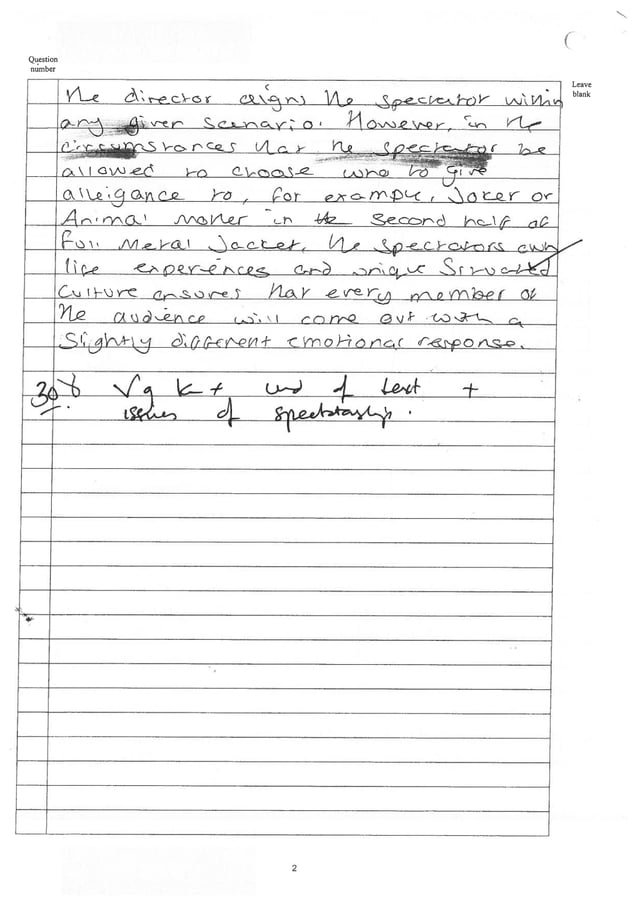 Question
number
Leave
blank
the director aligns the spectator within
any given scenario. However, in the
circumstances that the spectator be
allowed to choose who to give
alleigance to, for example, Joker or
Animal Mother in the second half of
Full Metal Jacket, the spectators own
life experiences and unique Structed
Culture ensures that every member of
the audience will come out with a
slightly different emotional response.
30 Vg K + und of text +
issues of spectatorship.
2